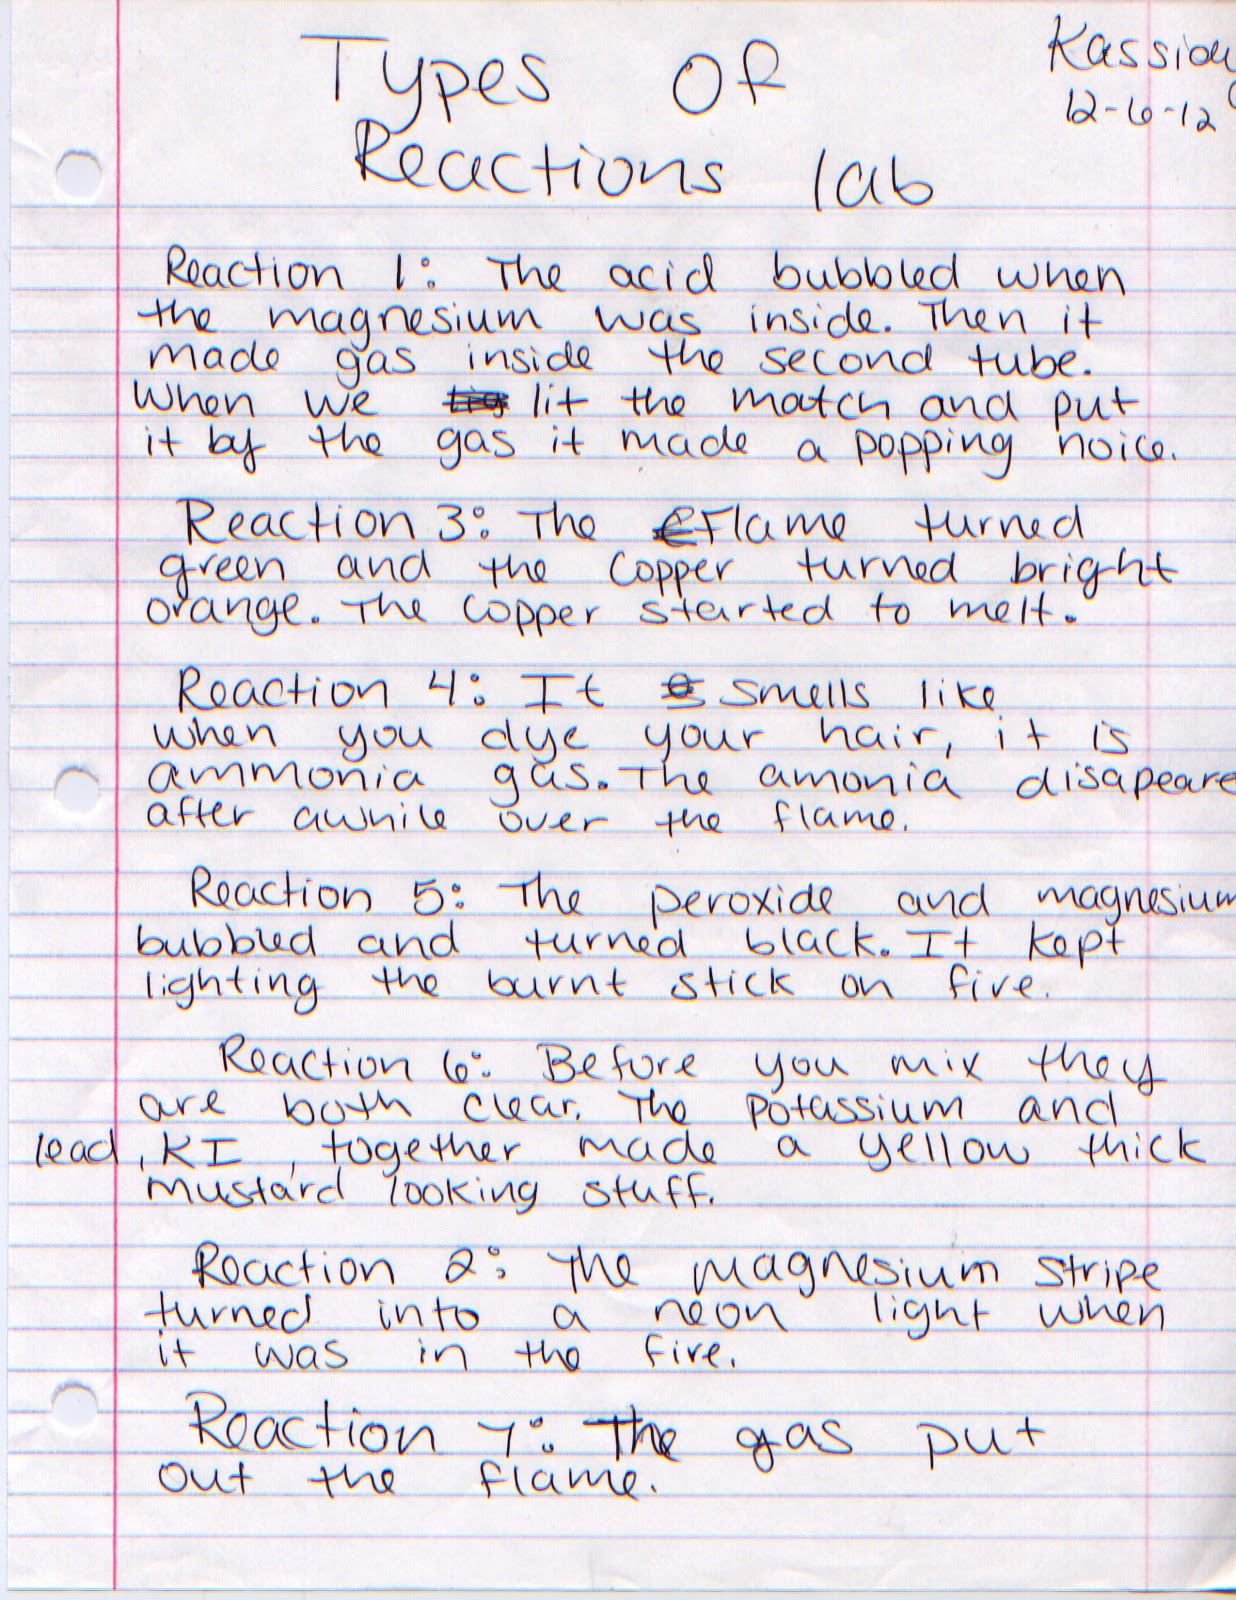 Types Of
Kassidy
12-6-12
Reactions lab
Reaction 1: The acid bubbled when
the magnesium was inside. Then it
made gas inside the second tube.
When we lit the match and put
it by the gas it made a popping noice.
Reaction 3: The Flame turned
green and the copper turned bright
orange. The copper started to melt.
Reaction 4: It smells like
when you dye your hair, it is
ammonia gas. The amonia disapeare
after awhile over the flame.
Reaction 5: The peroxide and magnesium
bubbled and turned black. It kept
lighting the burnt stick on fire.
Reaction 6: Before you mix they
are both clear. The potassium and
lead, KI, together made a yellow thick
mustard looking stuff.
Reaction 2: The magnesium stripe
turned into a neon light when
it was in the fire.
Reaction 7: The gas put
out the flame.